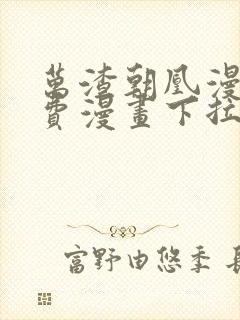 萬渣朝凰漫
費漫畫下拉
富野由悠季